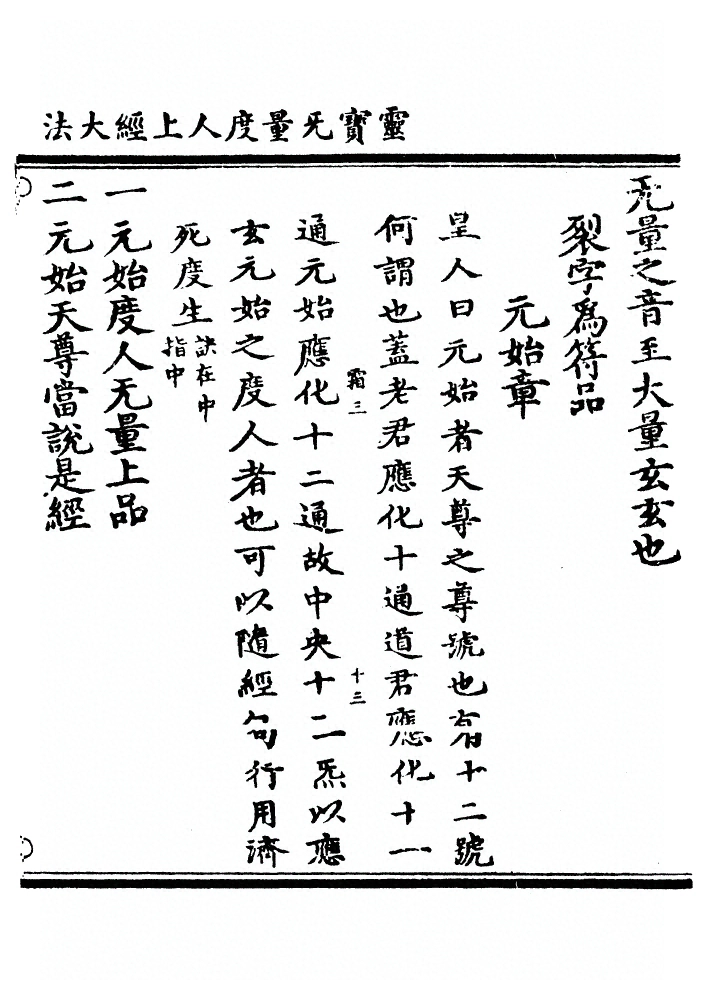 靈寶无量度人上經大法
无量之音至大量玄玄也
裂字為符品
元始章
皇人曰元始者天尊之尊號也有十二號
何謂也蓋老君應化十通道君應化十一
霜三
十三
通元始應化十二通故中央十二炁以應
玄元始之度人者也可以隨經句行用濟
死度生訣在中
指中
一元始度人无量上品
二元始天尊當說是經